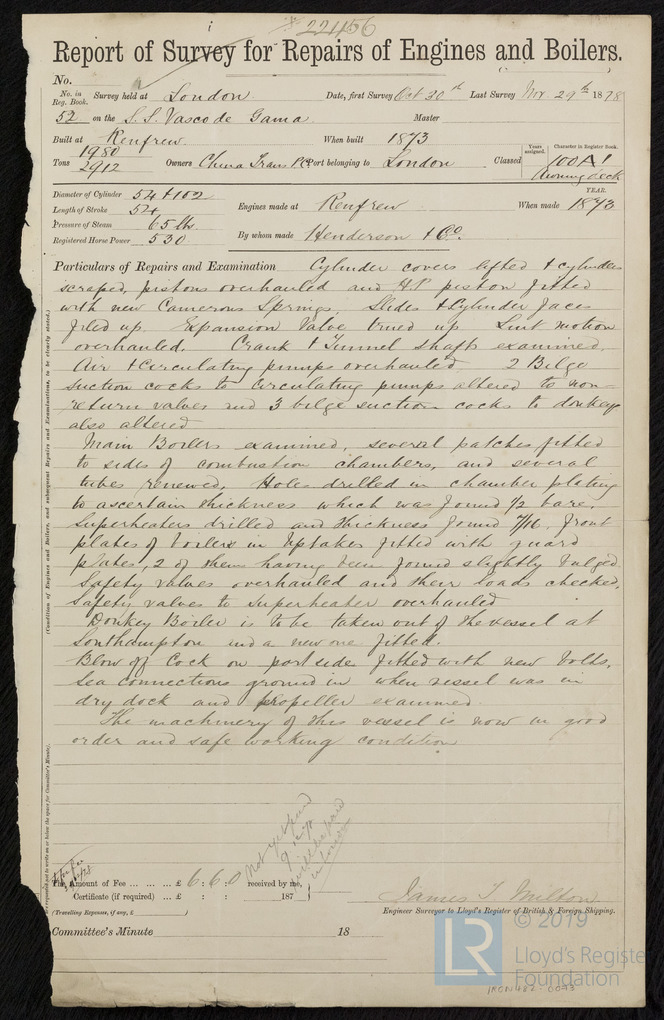 22456
Report of Survey for Repairs of Engines and Boilers.
No.
No. in Reg. Book. Survey held at London Date, first Survey Oct 30th Last Survey Nov 29th 1878
52 on the S.S. Vasco de Gama Master
Built at Renfrew When built 1873
Tons 1980 2912 Owners China Trans P. Co Port belonging to London Classed
Years assigned. Character in Register Book.
100 A 1
Awning deck
Diameter of Cylinder 54 + 102
Length of Stroke 54
Pressure of Steam 65 lb.
Registered Horse Power 530
Engines made at Renfrew When made YEAR. 1873
By whom made Henderson & Co.
Particulars of Repairs and Examination Cylinder covers lifted & cylinders
scraped, pistons overhauled and H.P. piston fitted
with new Camerons Springs, Slides & Cylinder faces
filed up. Expansion Valve trued up Link motion
overhauled. Crank & Tunnel shafts examined.
Air & Circulating pumps overhauled. 2 Bilge
suction cocks to Circulating pumps altered to non-
return valves and 3 bilge suction cocks to donkeys
also altered
Main Boilers examined, several patches fitted
to sides of combustion chambers, and several
tubes renewed. Holes drilled in chamber plating
to ascertain thickness which was found 1/2 bare.
Superheaters drilled and thickness found 7/16. front
plates of boilers in uptakes fitted with guard
plates, 2 of them having been found slightly bulged.
Safety valves overhauled and their loads checked.
Safety valves to Superheater overhauled
Donkey Boiler is to be taken out of the vessel at
Southampton and a new one fitted.
Blow off Cock on port side fitted with new bolts,
Sea connections ground in when vessel was in
dry dock and propeller examined.
The machinery of this vessel is now in good
order and safe working condition
(Condition of Engines and Boilers, and subsequent Repairs and Examinations, to be clearly stated.)
not to write on or below the space for Committee's Minute.
not yet paid
will be paid
Amount of Fee ... £ 6 : 6 . 0 received by me,
Certificate (if required) ... £ : : 187
(Travelling Expenses, if any, £ )
James T. Milton
Engineer Surveyor to Lloyd's Register of British & Foreign Shipping.
Committee's Minute 18
LR
© 2019
Lloyd's Register
Foundation
IRON482-0073